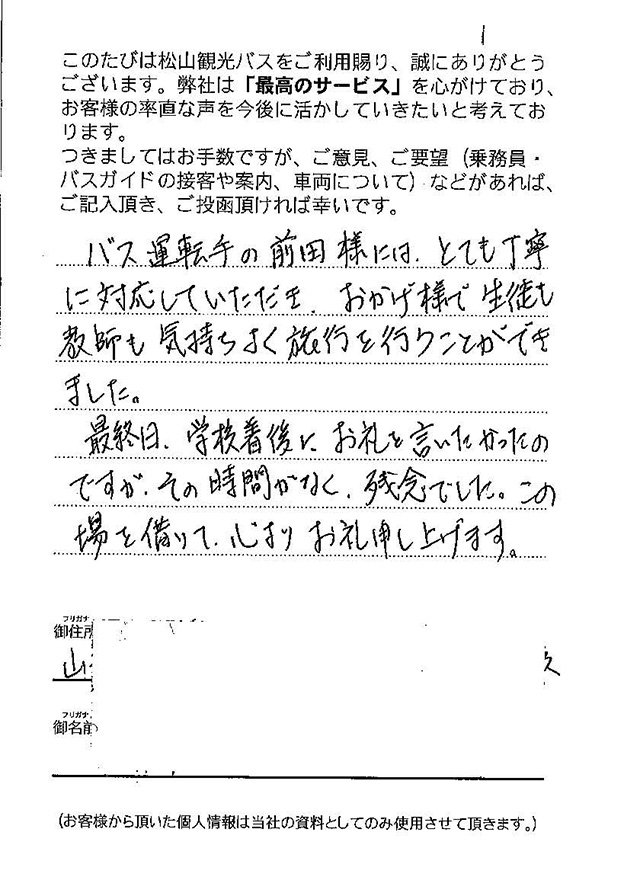 1
このたびは松山観光バスをご利用賜り、誠にありがとう
ございます。弊社は「最高のサービス」を心がけており、
お客様の率直な声を今後に活かしていきたいと考えてお
ります。
つきましてはお手数ですが、ご意見、ご要望（乗務員・
バスガイドの接客や案内、車両について）などがあれば、
ご記入頂き、ご投函頂ければ幸いです。
バス運転手の前田様には、とても丁寧
に対応していただき、おかげ様で生徒も
教師も気持ちよく旅行を行うことができ
ました。
最終日、学校着後に、お礼を言いたかったの
ですが、その時間がなく、残念でした。この
場を借りて、心よりお礼申し上げます。
フリガナ
御住所
山
フリガナ
御名前
（お客様から頂いた個人情報は当社の資料としてのみ使用させて頂きます。）